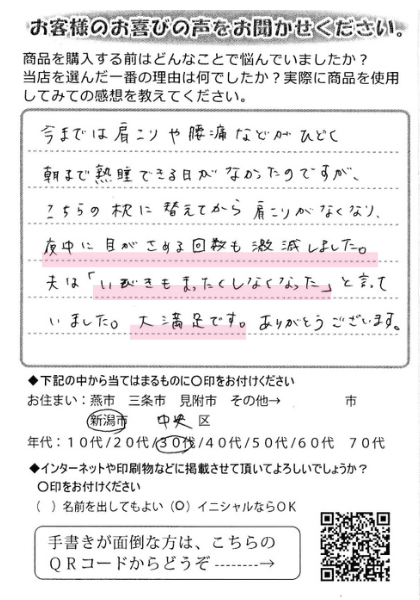 お客様のお喜びの声をお聞かせください。
商品を購入する前はどんなことで悩んでいましたか？
当店を選んだ一番の理由は何でしたか？実際に商品を使用
してみての感想を教えてください。
今までは肩こりや腰痛などがひどく
朝まで熟睡できる日がなかったのですが、
こちらの枕に替えてから肩こりがなくなり、
夜中に目がさめる回数も激減しました。
夫は「いびきもまったくしなくなった」と言って
いました。大満足です。ありがとうございます。
◆下記の中から当てはまるものに〇印をお付けください
お住まい：燕市　三条市　見附市　その他→　　　　市
新潟市　中央区
年代：１０代/２０代/３０代/４０代/５０代/６０代　７０代
◆インターネットや印刷物などに掲載させて頂いてよろしいでしょうか？
〇印をお付けください
（　）名前を出してもよい（〇）イニシャルならＯＫ
手書きが面倒な方は、こちらの
ＱＲコードからどうぞ -------->